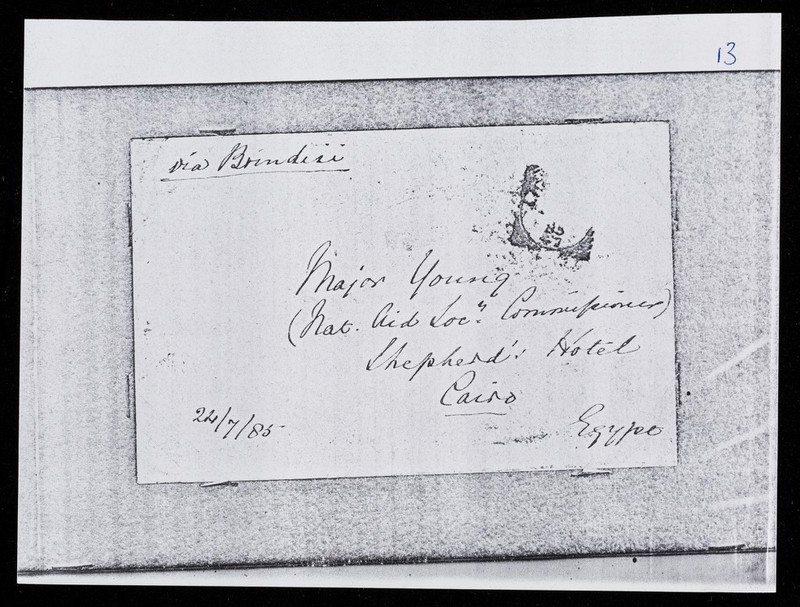 13
via Brindisi
Major Young
(Nat. Aid Socy. Commissioner)
Shepherd's Hotel
Cairo
Egypt
24/7/85